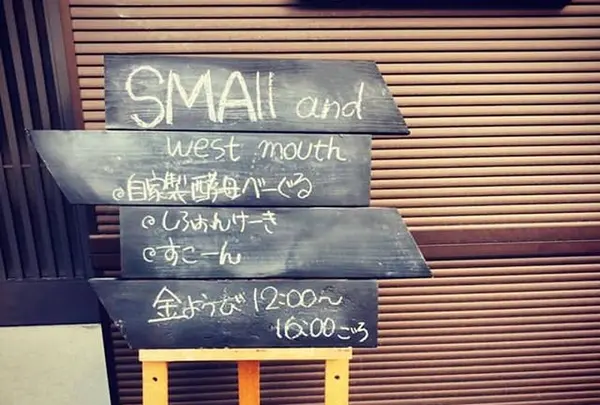 SMAll and
west mouth
自家製酵母べーぐる
しふぉんけーき
すこーん
金ようび 12:00〜
16:00ごろ